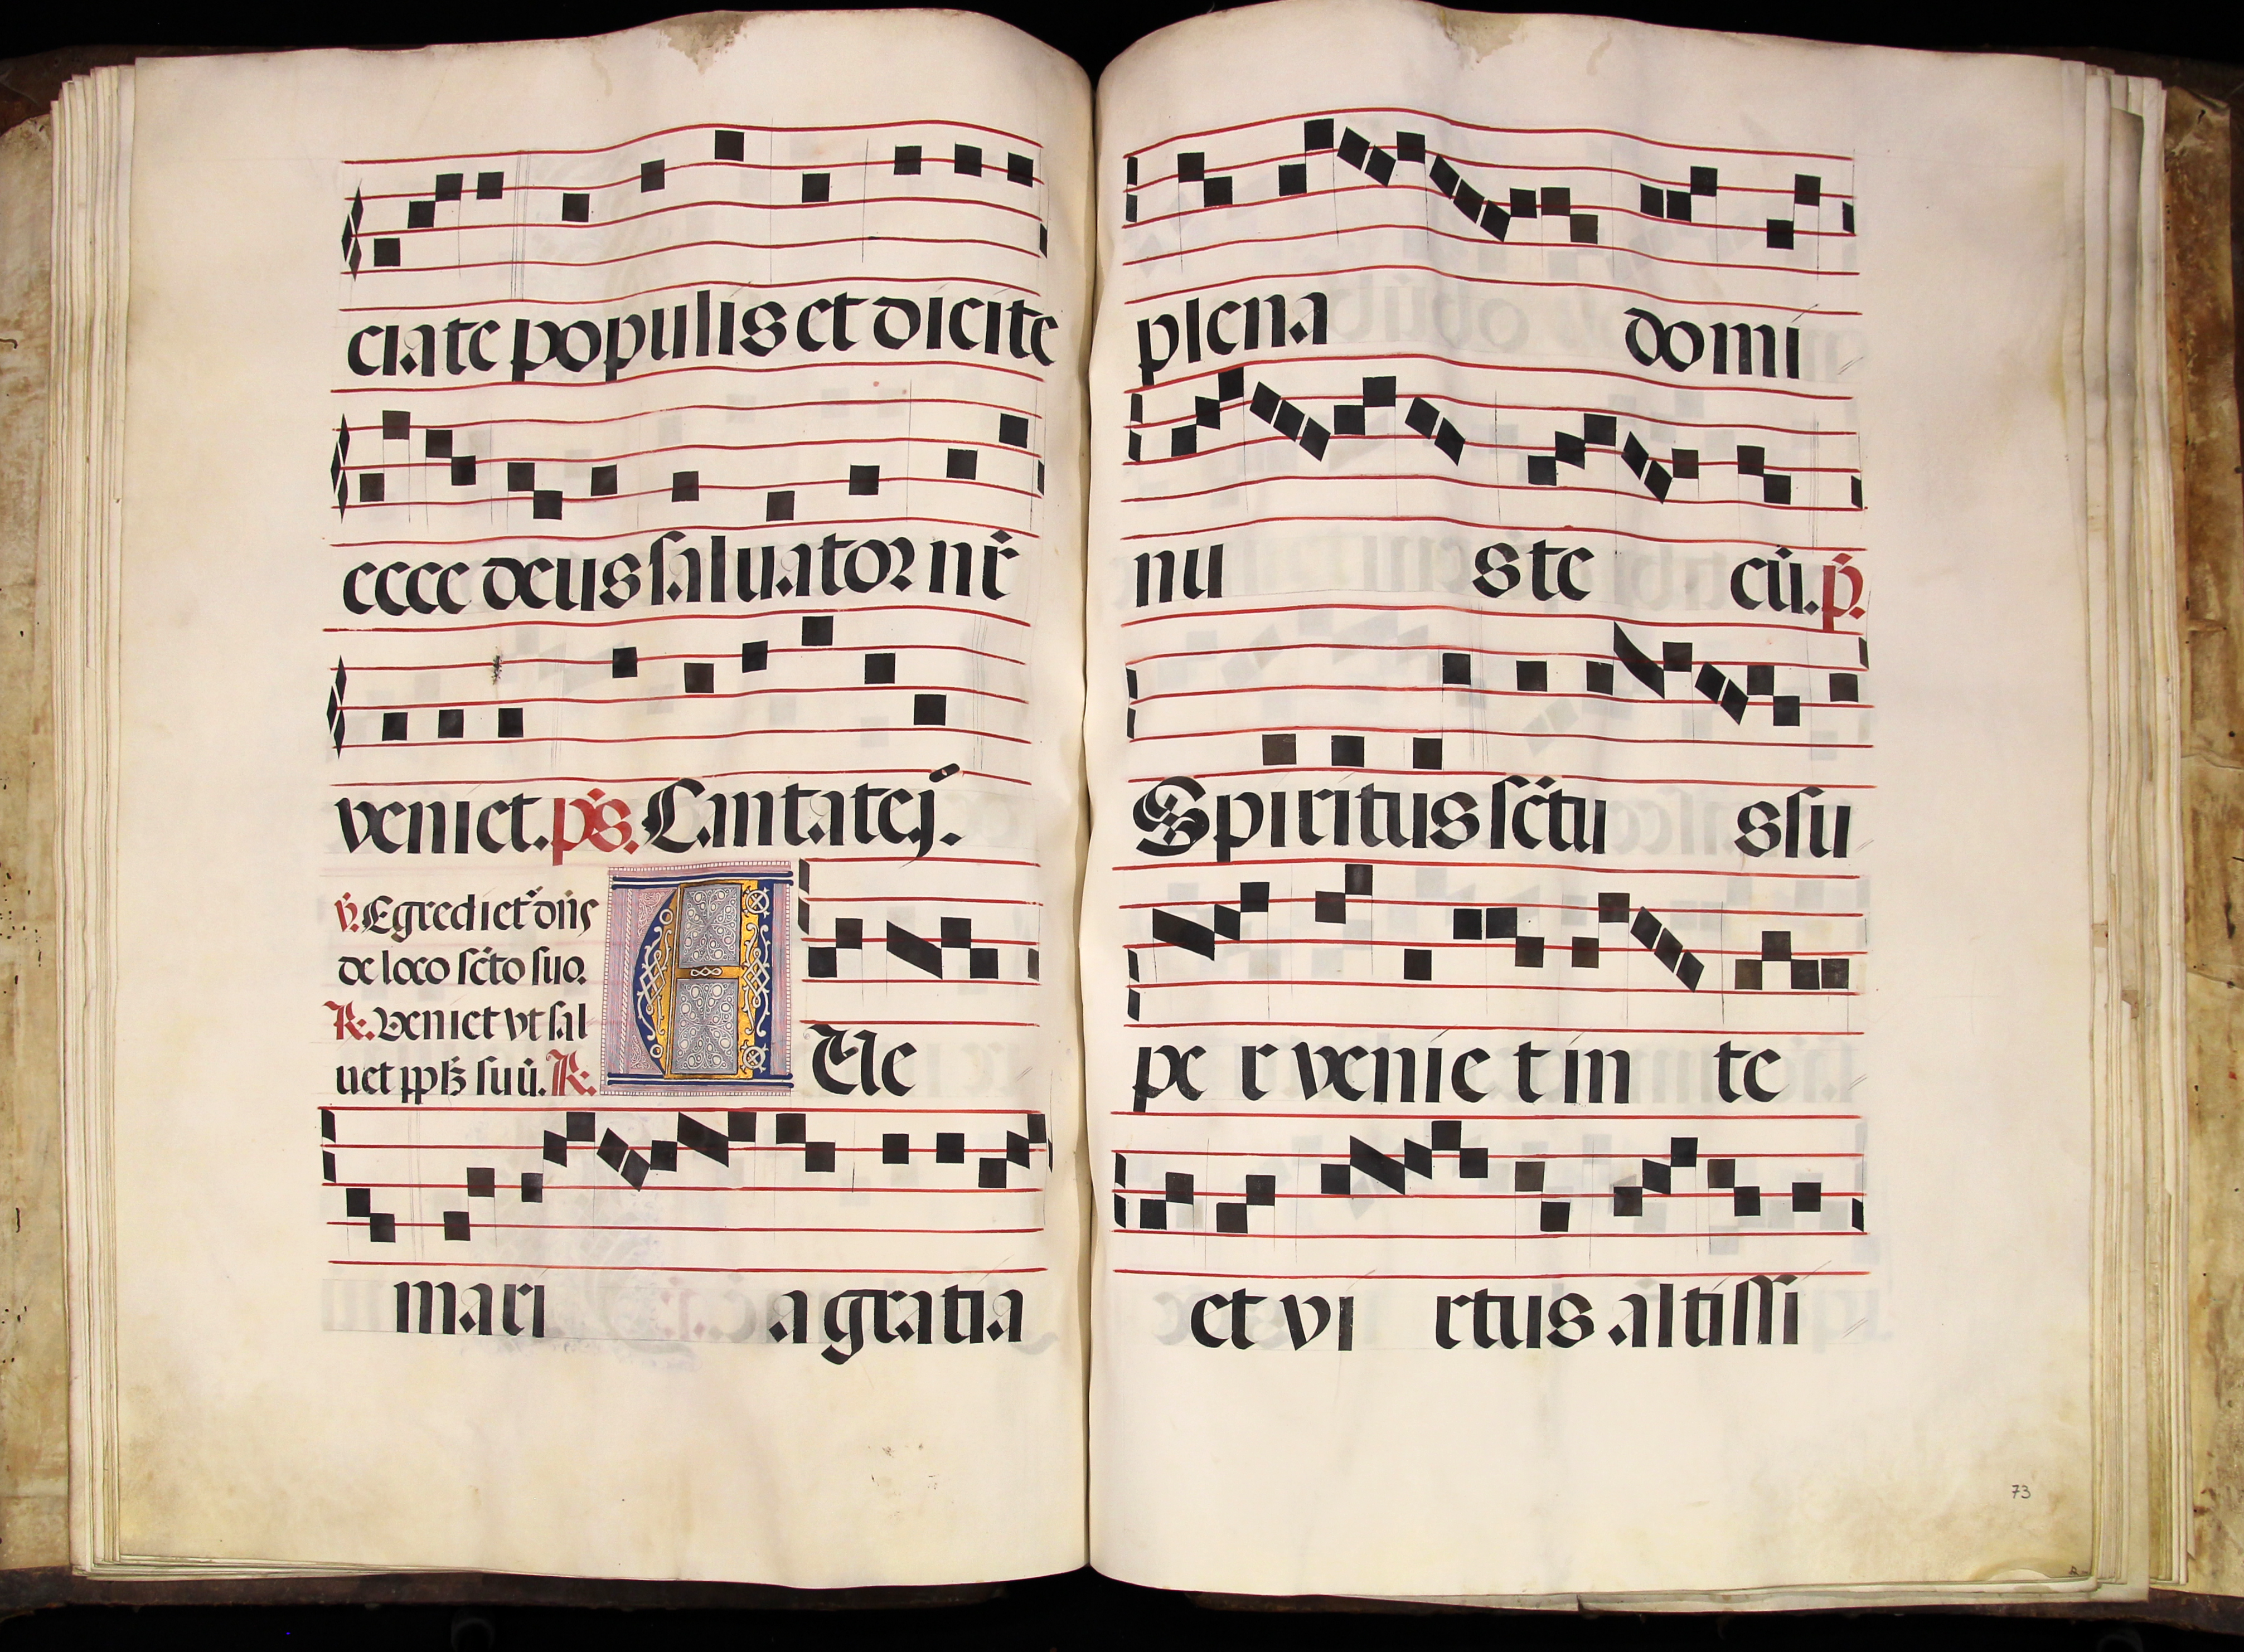 ciate populis et dicite
ecce deus saluator nr̃
veniet. ps̃. Cantatej.
v̇. Egrediet᷑ dñs
de loco sc̃to suo.
R. Veniet vt sal
uet pplʒ suũ. R.
AUe
mari a gratia
plena domi
nu s te cũ. p̃.
Spiritus sc̃tu s su
pe r venie t in te
et vi rtus altissi
73